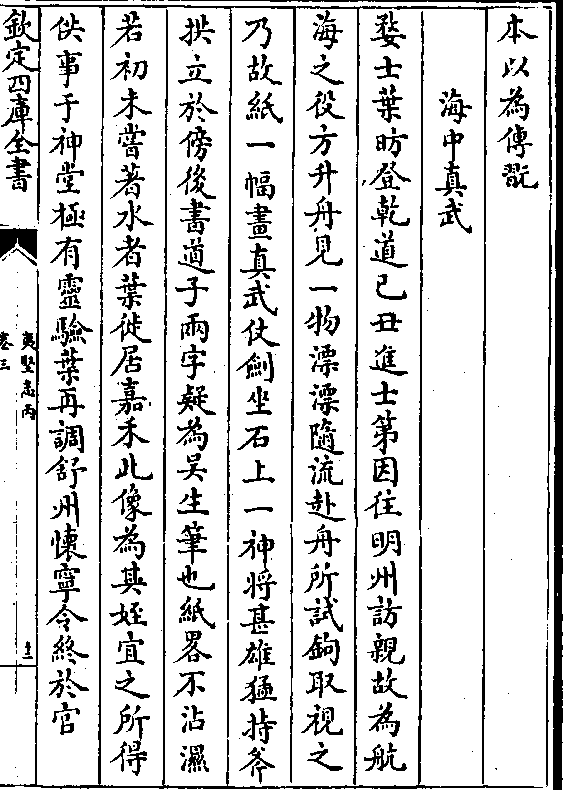 本以為傳翫
海中真武
婺士葉昉登乾道己丑進士第因往明州訪親故為航
海之役方升舟見一物漂漂隨流赴舟所試鉤取視之
乃故紙一幅畫真武仗劍坐石上一神將甚雄猛持斧
拱立於傍後書道子兩字疑為吳生筆也紙畧不沾濕
若初未嘗著水者葉徙居嘉禾此像為其姪宜之所得
供事于神堂極有靈驗葉再調舒州懷寧令終於官
欽定四庫全書
夷堅志丙
卷三